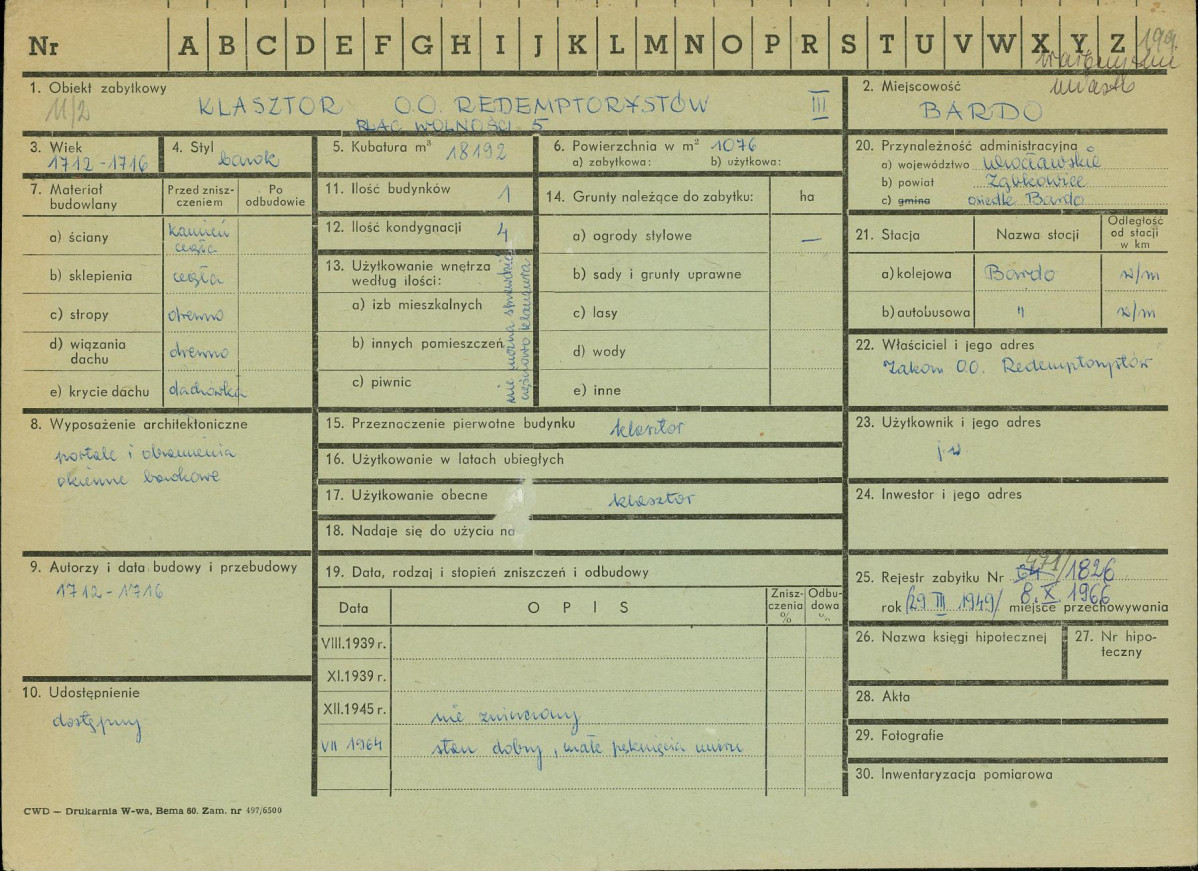 Nr A B C D E F G H I J K L M N O P R S T U V W X Y Z 199.
miasto
1. Obiekt zabytkowy
11/2
KLASZTOR O.O. REDEMPTORYSTÓW III
PLAC WOLNOŚCI 5
2. Miejscowość
BARDO
3. Wiek
1712-1716
4. Styl
barok
5. Kubatura m³ 18192
6. Powierzchnia w m² 1076
a) zabytkowa: b) użytkowa:
7. Materiał budowlany
Przed znisz-
czeniem
Po
odbudowie
a) ściany kamień
cegła
b) sklepienia cegła
c) stropy drewno
d) wiązania
dachu drewno
e) krycie dachu dachówka
8. Wyposażenie architektoniczne
portale i obramienia
okienne barokowe
9. Autorzy i data budowy i przebudowy
1712-1716
10. Udostępnienie
dostępny
11. Ilość budynków 1
12. Ilość kondygnacji 4
13. Użytkowanie wnętrza
według ilości:
a) izb mieszkalnych
b) innych pomieszczeń
c) piwnic
nie można sprawdzić
częściowo klauzura
14. Grunty należące do zabytku: ha
a) ogrody stylowe —
b) sady i grunty uprawne
c) lasy
d) wody
e) inne
15. Przeznaczenie pierwotne budynku klasztor
16. Użytkowanie w latach ubiegłych
17. Użytkowanie obecne klasztor
18. Nadaje się do użycia na
19. Data, rodzaj i stopień zniszczeń i odbudowy
Data OPIS Znisz-
czenia
%
Odbu-
dowa
%
VIII.1939 r.
XI.1939 r.
XII.1945 r. nie zniszczony
VII 1964 stan dobry, małe pęknięcia muru
20. Przynależność administracyjna
a) województwo wrocławskie
b) powiat Ząbkowice
c) gmina osiedle Bardo
21. Stacja Nazwa stacji Odległość
od stacji
w km
a) kolejowa Bardo w/m
b) autobusowa " w/m
22. Właściciel i jego adres
Zakon OO. Redemptorystów
23. Użytkownik i jego adres
j.w.
24. Inwestor i jego adres
25. Rejestr zabytku Nr 64 471/1826
rok /29 III 1949/ 8.X 1966 miejsce przechowywania
26. Nazwa księgi hipotecznej
27. Nr hipo-
teczny
28. Akta
29. Fotografie
30. Inwentaryzacja pomiarowa
CWD — Drukarnia W-wa, Bema 60. Zam. nr 497/6500